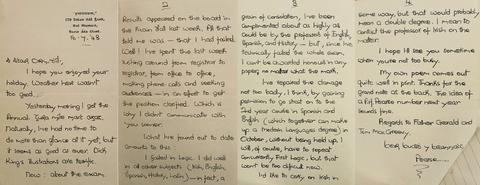 "DUNVARNA",
179 Sutton Park Road,
16-9-63
A Chara, dhil,
I hope you enjoyed your
holiday. Weather hasn't been
too good.
Yesterday morning I got the
Annual. Míle maith agat.
Naturally, I've had no time to
do more than glance at it yet, but
it seems as good as ever. Dick
King's illustrations are terrific.
Now: about the exam.
2
Results appeared on the board in
the Main Hall last week. All that
told me was – that I had failed.
Well I've spent the last week
running around from registrar to
registrar, from office to office,
making phone calls and seeking
audiences – in an effort to get
the position clarified. Which is
why I didn't communicate with
you sooner.
What I've found out to date
amounts to this:
I failed in Logic. I did well
in all other subjects (Irish, English,
Spanish, History, Latin) – in fact, a
3
grain of consolation, I've been
complimented about as highly as
could be by the professors of English,
Spanish, and History – but, since I've
technically failed the whole exam,
I can't be awarded honours in any
papers no matter what the mark.
I've repaired the damage
not too badly, I think, by gaining
permission to go straight on to the
2nd year course in Spanish and
English (which together can make
up a Modern Languages degree) in
October, without being held up. I
will, of course, have to repeat
concurrently, First Logic, but that
won't be too difficult now.
I'd like to carry on Irish in
4
some way, but that would probably
mean a double degree. I mean to
contact the professor of Irish on the
matter.
I hope I'll see you sometime
when you're not too busy.
My own poem comes out
quite well in print. Thanks for the
grand note at the back. The idea of
a Pearse number next year
sounds fine.
Regards to Father Gerald and
Tom MacGreevy.
Pearse